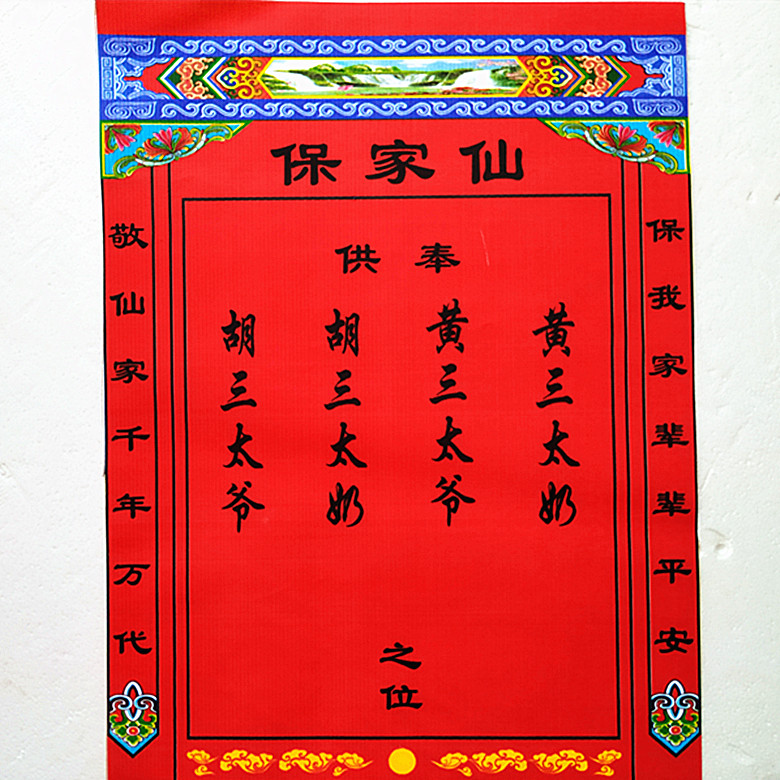 保家仙
供奉
胡三太爷
胡三太奶
黄三太爷
黄三太奶
之位
敬仙家千年万代
保我家辈辈平安